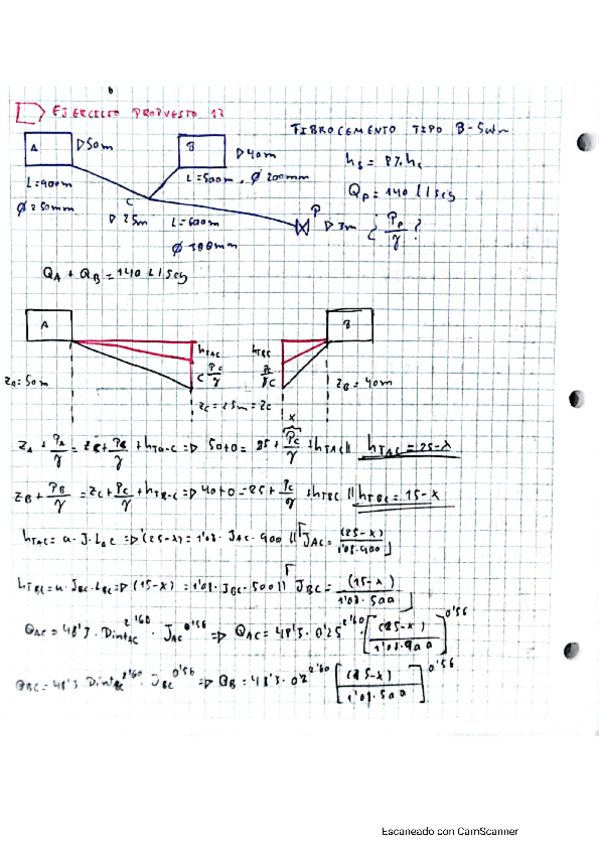 EJERCICIO PROPUESTO 12
FIBROCEMENTO TIPO B-5atm
A ▷50m B ▷40m
hs = 8% hc
L=900m L=500m, Ø 200mm
Ø 250mm
Qp = 140 l/seg
C ▷25m L=600m P ▷3m ¿ Pp/γ ?
Ø 300mm
QA + QB = 140 L/seg
A B
hTAC hTBC
C Pc/γ
ZA=50m ZC=25m=ZC ZB=40m
x
ZA + PA/γ = ZB + PB/γ + hTA-C => 50+0 = 25 + Pc/γ + hTAC || hTAC = 25-x
ZB + PB/γ = ZC + PC/γ + hTB-C => 40+0 = 25 + Pc/γ + hTBC || hTBC = 15-x
hTAC = a · J · LAC => (25-x) = 1'08 · JAC · 900 || JAC = (25-x)/1'08·900
hTBC = a · JBC · LBC => (15-x) = 1'08 · JBC · 500 || JBC = (15-x)/1'08·500
QAC = 48'3 · DintAC^2'60 · JAC^0'56 => QAC = 48'3 · 0'25^2'60 · [(25-x)/1'08·900]^0'56
QBC = 48'3 DintBC^2'60 · JBC^0'56 => QB = 48'3 · 0'2^2'60 [(15-x)/1'08·500]^0'56
Escaneado con CamScanner